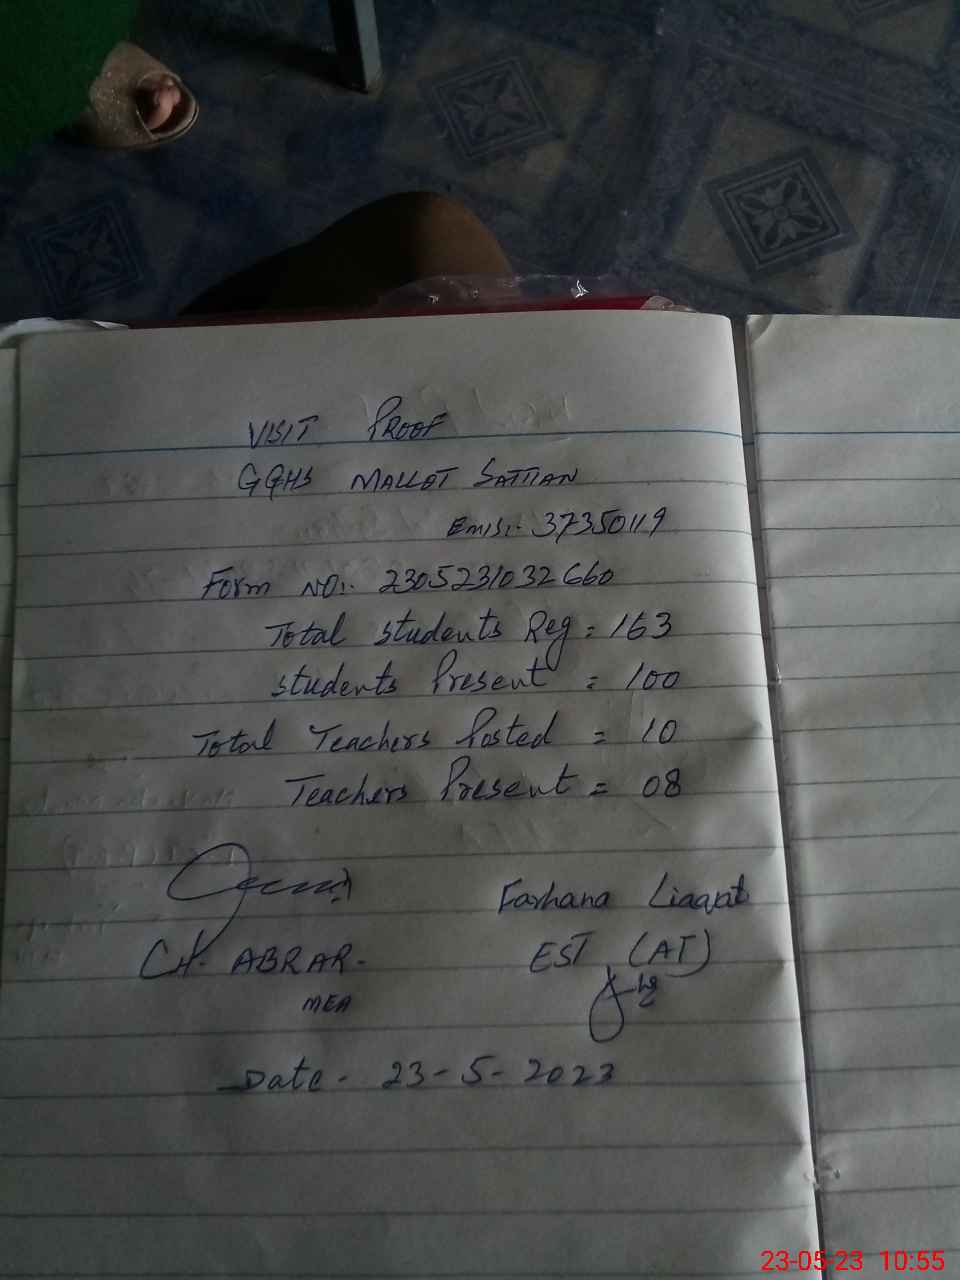 VISIT PROOF
GGHS MALLOT SATTIAN
EMIS:- 37350119
Form NO:- 2305231032660
Total students Reg = 163
students Present = 100
Total Teachers Posted = 10
Teachers Present = 08
Farhana Liaqat
CH. ABRAR.
EST (AT)
MEA
Date - 23-5-2023
23-05-23 10:55